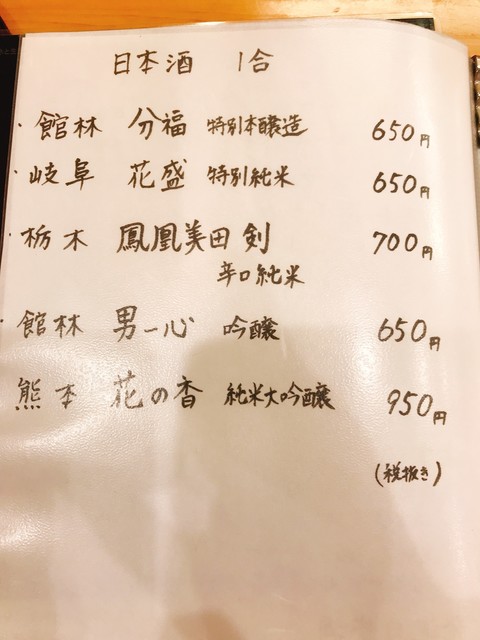 日本酒 1合
・館林 分福 特別本醸造 650円
・岐阜 花盛 特別純米 650円
・栃木 鳳凰美田 剣 700円
辛口純米
・館林 男一心 吟醸 650円
熊本 花の香 純米大吟醸 950円
(税抜き)